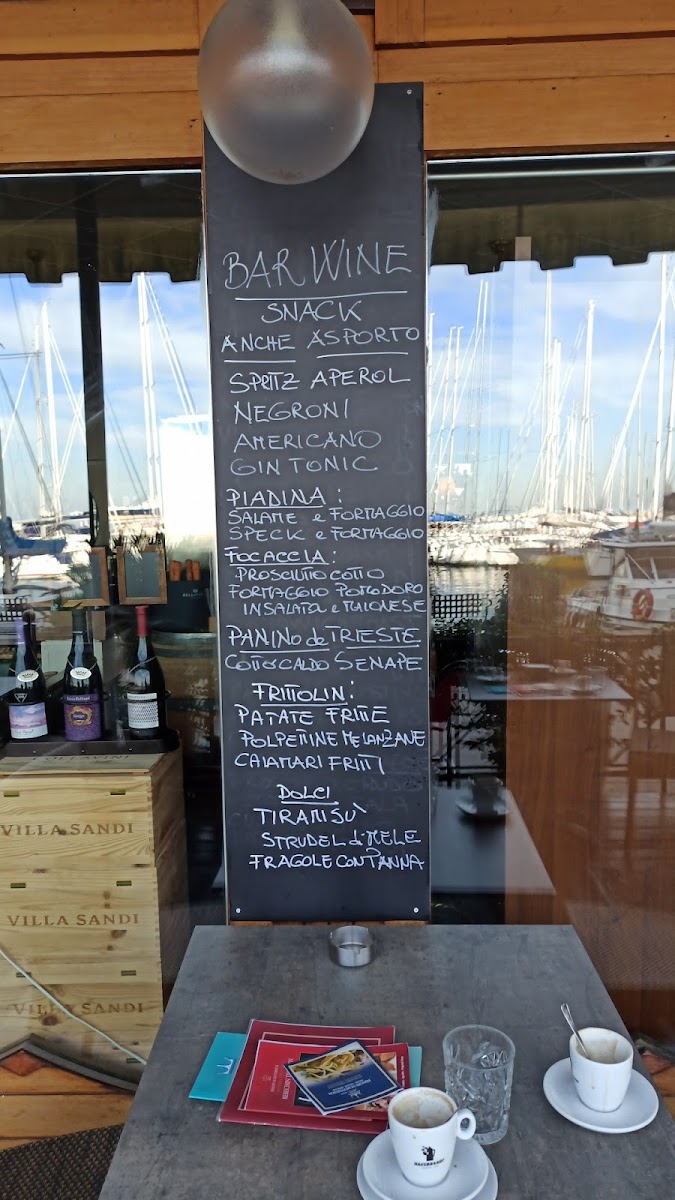 BAR WINE
SNACK
ANCHE ASPORTO
SPRITZ APEROL
NEGRONI
AMERICANO
GIN TONIC
PIADINA:
SALAME e FORMAGGIO
SPECK e FORMAGGIO
FOCACCIA:
PROSCIUTTO COTTO
FORMAGGIO POMODORO
INSALATA e MAIONESE
PANINO de TRIESTE
COTTO CALDO SENAPE
FRITTOLIN:
PATATE FRITTE
POLPETTINE MELANZANE
CALAMARI FRITTI
DOLCI
TIRAMISÙ
STRUDEL di MELE
FRAGOLE CON PANNA
VILLA SANDI
VILLA SANDI
VILLA SANDI
HAUSBRANDT